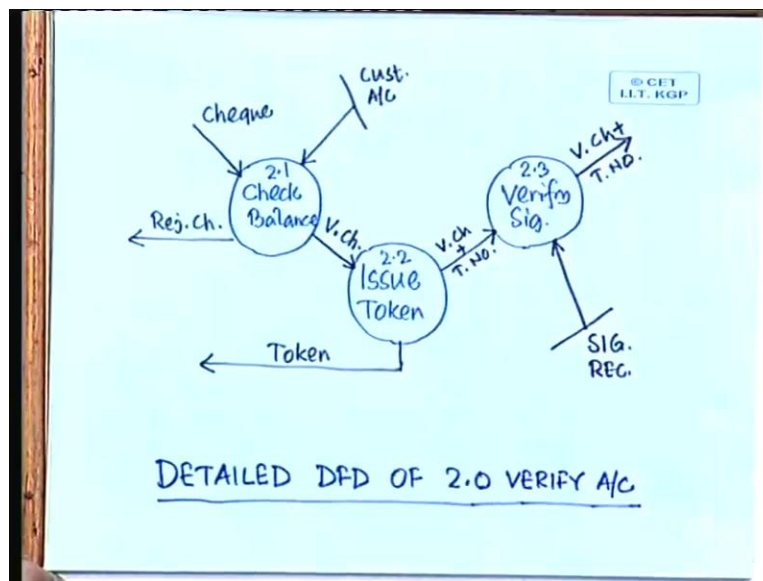 © CET
I.I.T. KGP
Cust.
A/C
Cheque
2.1
Check
Balance
Rej. Ch.
V. Ch.
2.2
Issue
Token
Token
V. Ch
+
T. NO.
2.3
Verify
Sig.
V. Ch+
T. NO.
SIG.
REC.
DETAILED DFD OF 2.0 VERIFY A/C